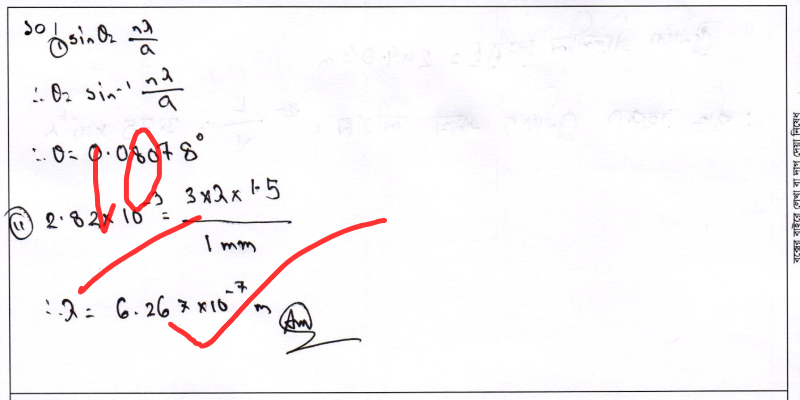 ১০ i) sinθ = nλ/a
∴ θ = sin⁻¹ nλ/a
∴ θ = 0.08078°
ii) 2.82 × 10⁻³ = 3 × λ × 1.5 / 1 mm
∴ λ = 6.267 × 10⁻⁷ m Ans
বক্সের বাইরে লেখা বা দাগ দেয়া নিষেধ